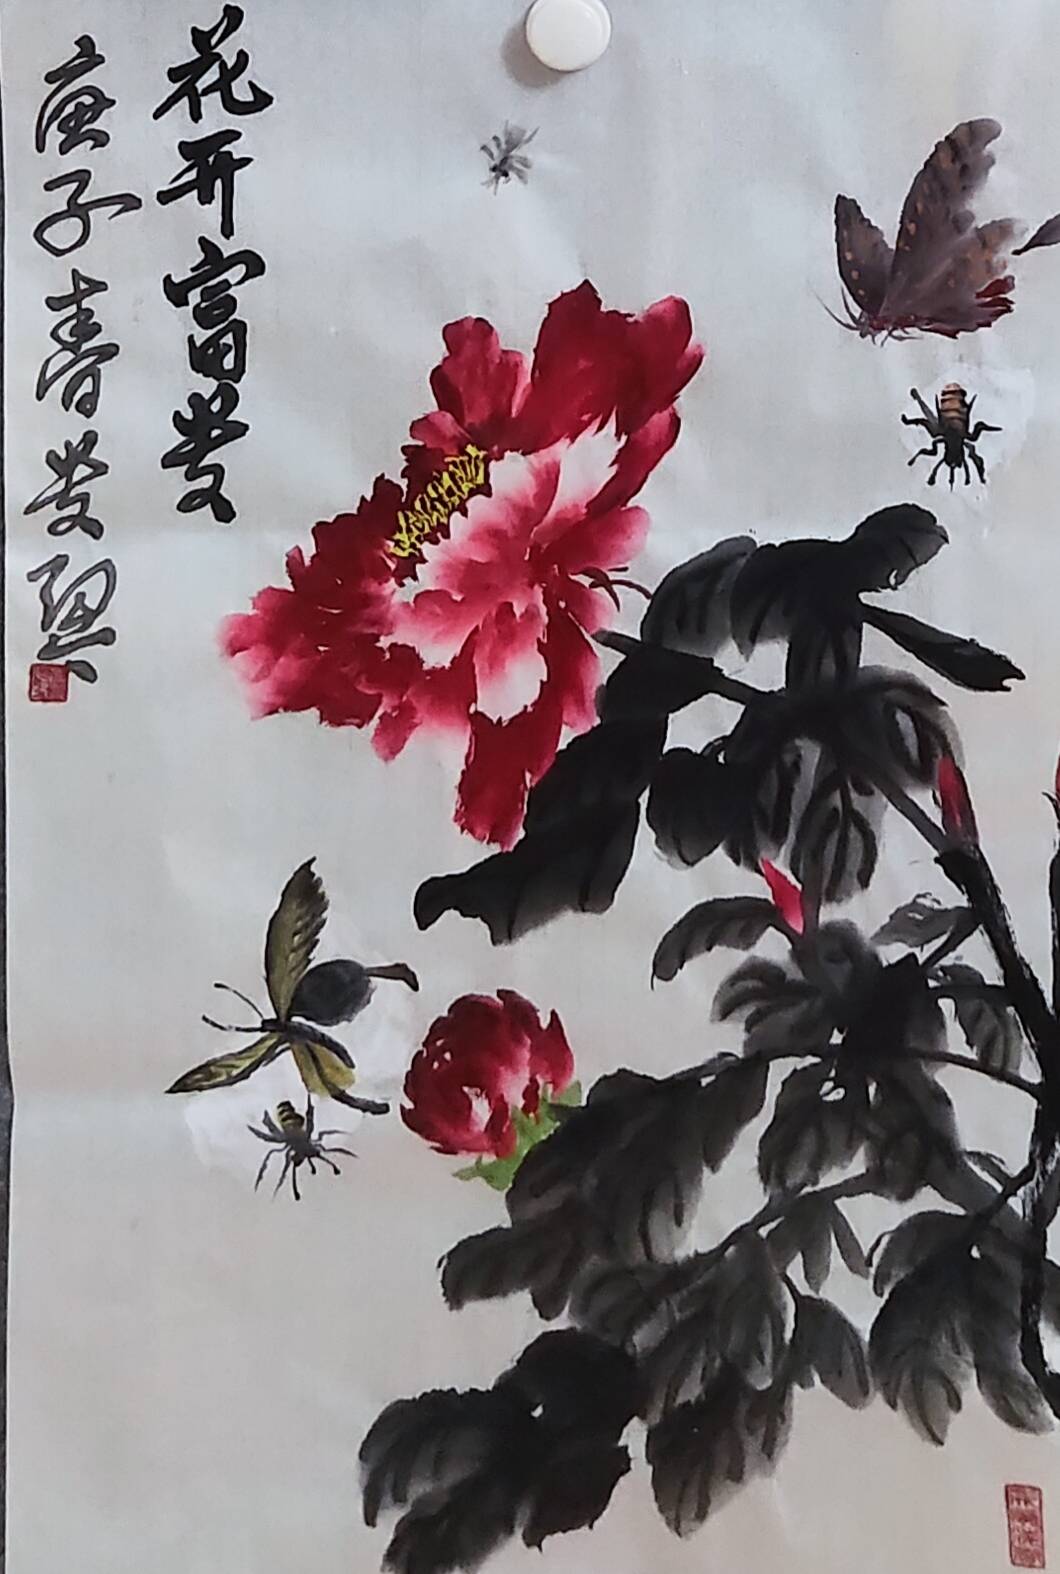 花开富贵
庚子春贵